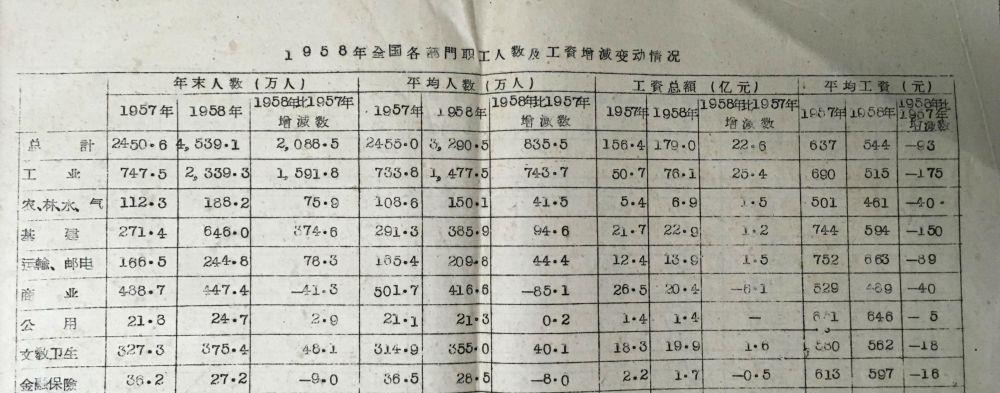 1958年全国各部門职工人数及工資增減变动情况
年末人数(万人) 平均人数(万人) 工資总額(亿元) 平均工資(元)
1957年 1958年 1958年比1957年增減数 1957年 1958年 1958年比1957年增減数 1957年 1958年 1958年比1957年增減数 1957年 1958年 1958年比1957年增減数
总計 2450.6 4,539.1 2,088.5 2455.0 3,290.5 835.5 156.4 179.0 22.6 637 544 —93
工业 747.5 2,339.3 1,591.8 733.8 1,477.5 743.7 50.7 76.1 25.4 690 515 —175
农、林、水、气 112.3 188.2 75.9 108.6 150.1 41.5 5.4 6.9 1.5 501 461 —40
基建 271.4 646.0 374.6 291.3 385.9 94.6 21.7 22.9 1.2 744 594 —150
运輸、邮电 166.5 244.8 78.3 165.4 209.8 44.4 12.4 13.9 1.5 752 663 —89
商业 488.7 447.4 —41.3 501.7 416.6 —85.1 26.5 20.4 —6.1 529 489 —40
公用 21.8 24.7 2.9 21.1 21.3 0.2 1.4 1.4 — 646 —5
文教卫生 327.3 375.4 48.1 314.9 355.0 40.1 18.3 19.9 1.6 580 562 —18
金融保險 36.2 27.2 —9.0 36.5 28.5 —8.0 2.2 1.7 —0.5 613 597 —16